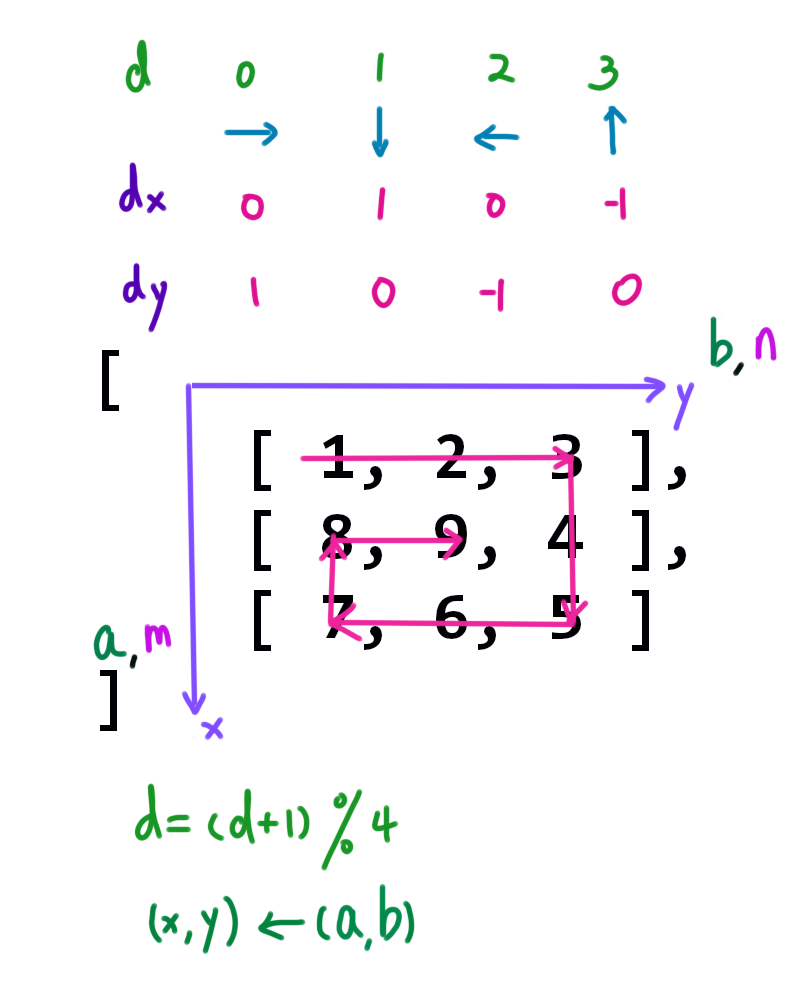 d 0 1 2 3
→ ↓ ← ↑
dx 0 1 0 -1
dy 1 0 -1 0
b, n
[
y
[ 1, 2, 3 ],
[ 8, 9, 4 ],
[ 7, 6, 5 ]
a, m
]
x
d = (d+1) % 4
(x, y) ← (a, b)